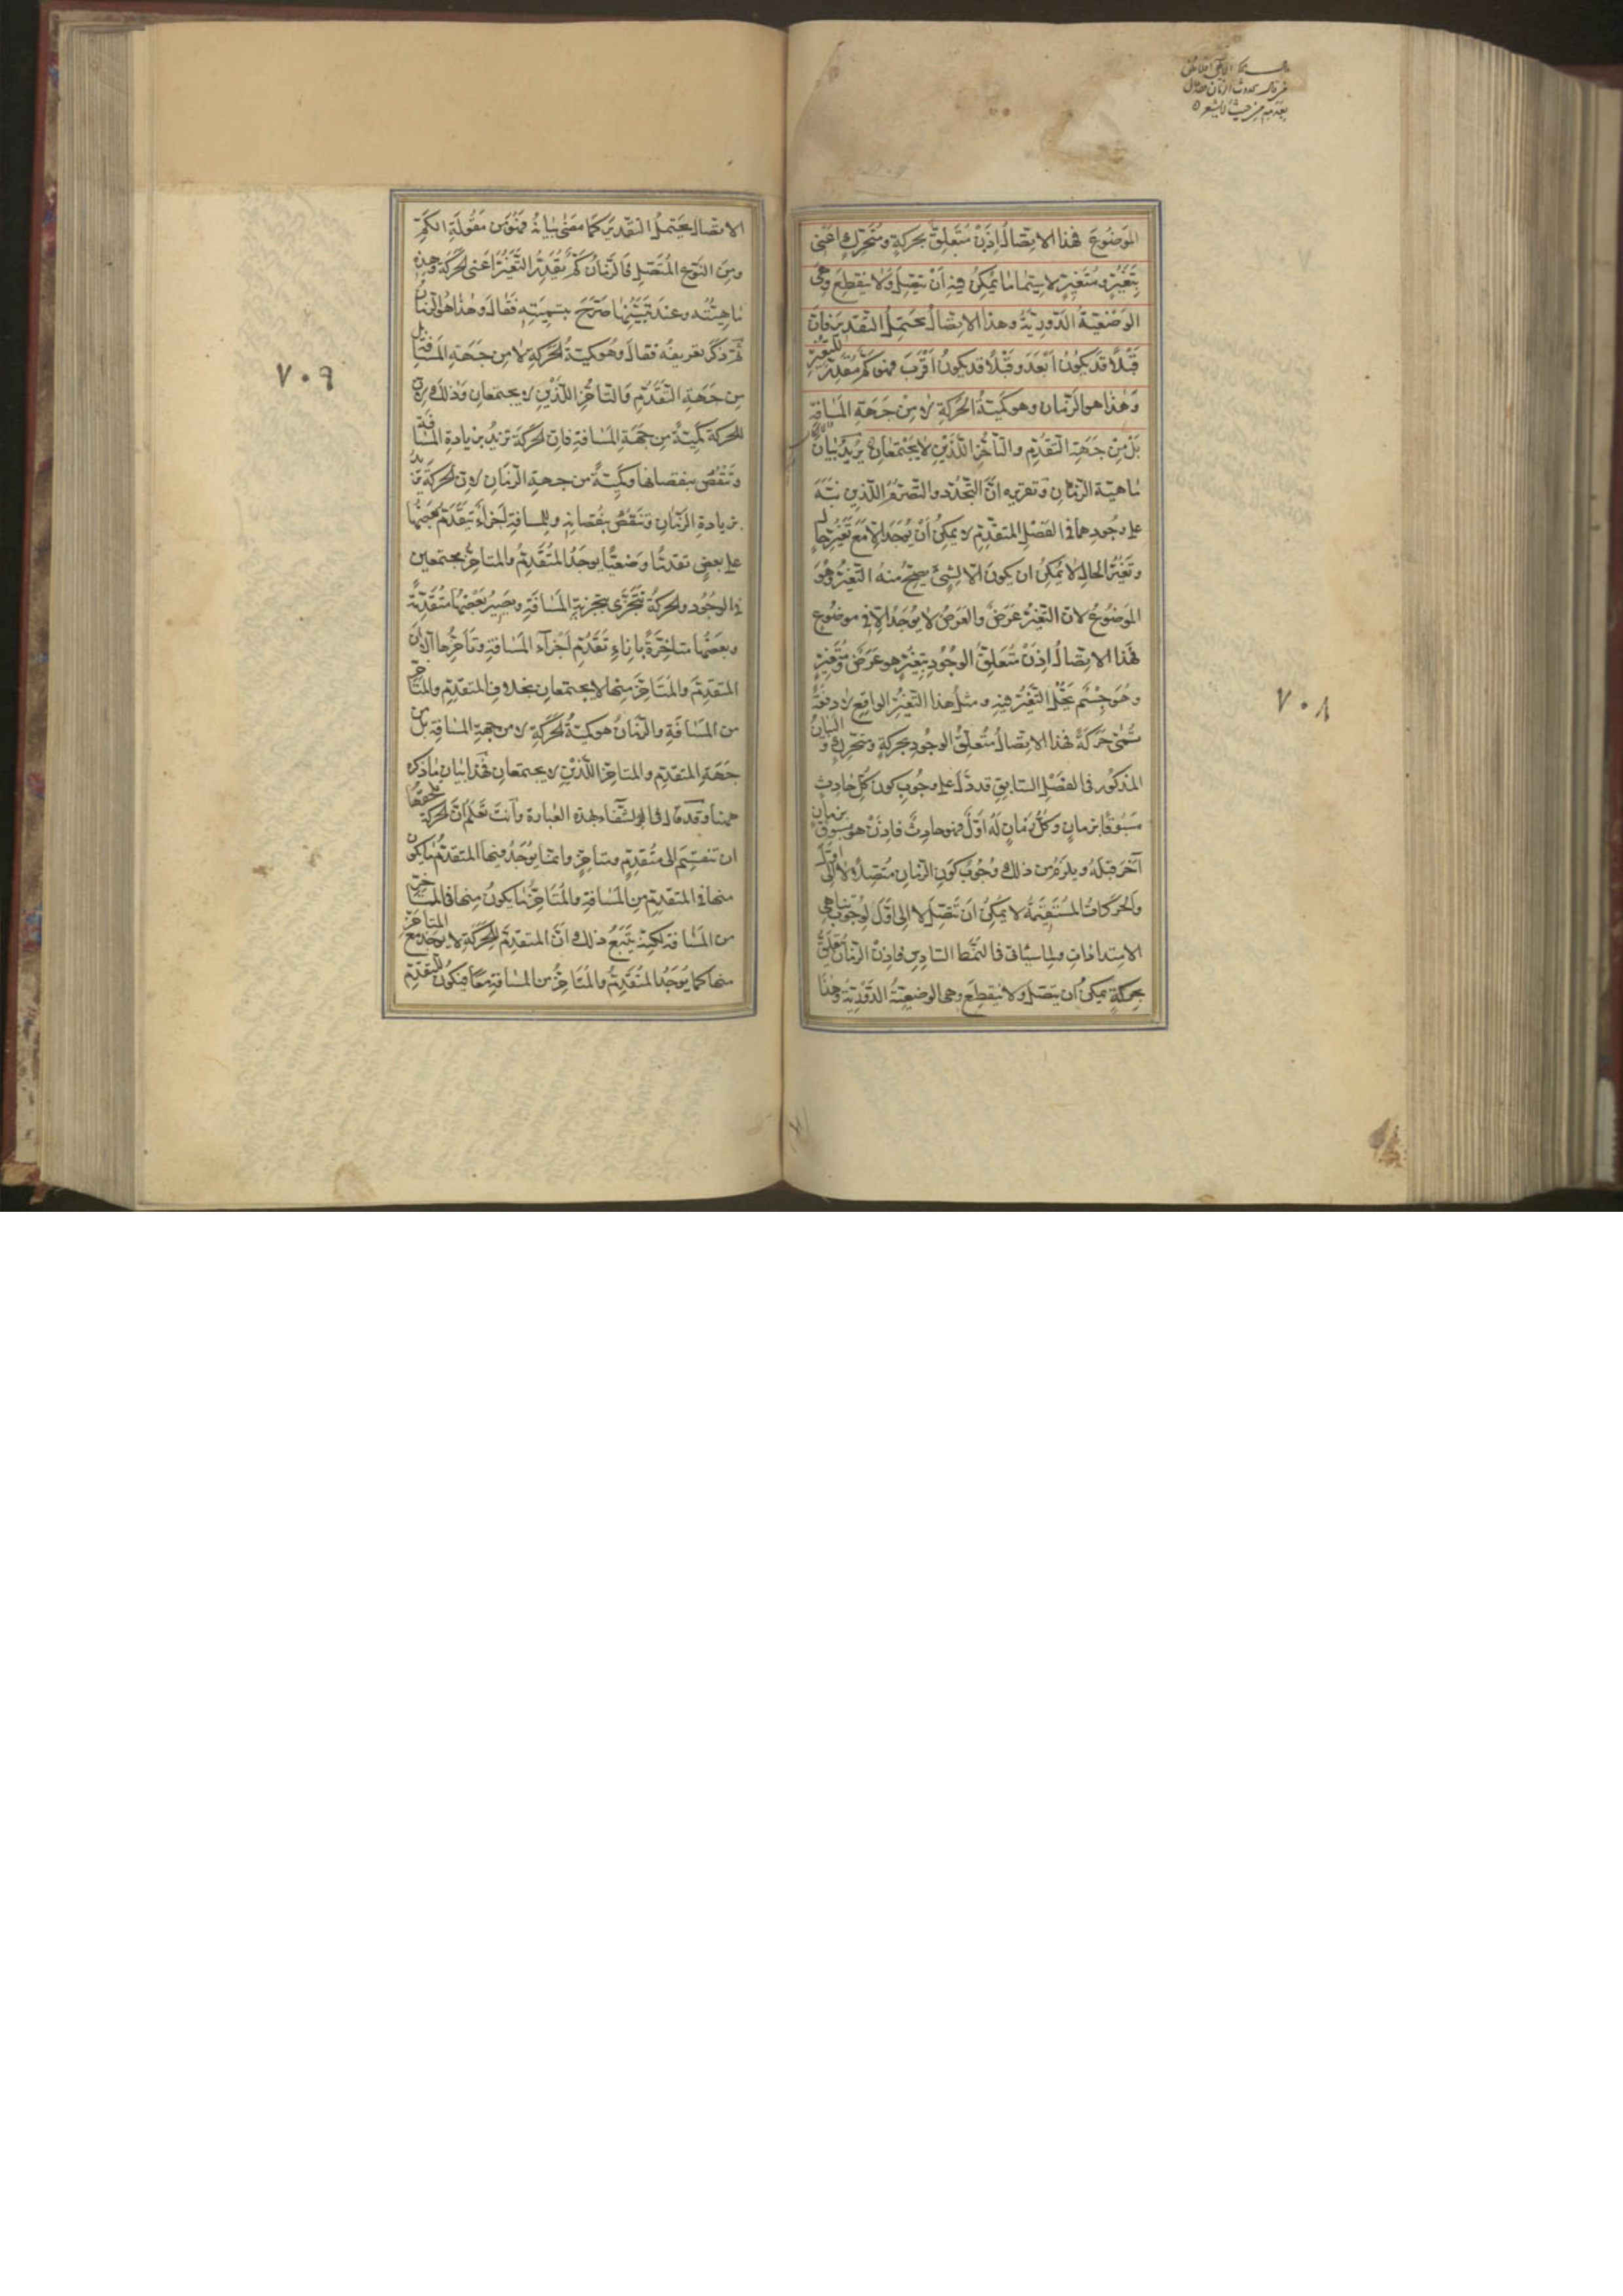 الموضوع فهذا الاتصال اذن متعلق بحركة ومتحرك اعنى
بتغير ومتغير لاسيما ما يمكن فيه ان يتصل ولا ينقطع وهى
الوضعية الدورية وهذا الاتصال يحتمل التقدير فان
قبلا قد يكون ابعد وقبلا قد يكون اقرب فهو كم مقدر للتغير
وهذا هو الزمان وهو كمية الحركة لا من جهة المسافة
بل من جهة التقدم والتاخر اللذين لا يجتمعان يريد بيان
ماهية الزمان وتقريره ان التجدد والتصرم اللذين نبه
على وجودهما فى الفصل المتقدم لا يمكن ان يوجد الا مع تغير حال
وتغير الحال لا يمكن ان يكون الا لشئ يصح منه التغير وهو
الموضوع لان التغير عرض والعرض لا يوجد الا فى موضوع
فهذا الاتصال اذن متعلق الوجود بتغير هو عرض ومتغير
وهو جسم يحل التغير فيه ومثل هذا التغير الواقع لا دفعة
تسمى حركة فهذا الاتصال متعلق الوجود بحركة ومتحرك و البيان
المذكور فى الفصل السابق قد دل على وجوب كون كل حادث
مسبوقا بزمان وكل زمان له اول فهو حادث فاذن هو مسبوق بزمان
آخر قبله ويلزم من ذلك وجوب كون الزمان متصلا لا الى اول
والحركات المستقيمة لا يمكن ان تتصل لا الى اول لوجوب تناهى
الامتدادات ولما سياتى فى النمط السادس فاذن الزمان متعلق
بحركة يمكن ان يتصل ولا ينقطع وهى الوضعية الدورية وهذا
٧٠٨
الاتصال يحتمل التقدير كما مضى بيانه فهو من مقولة الكم
ومن النوع المتصل فالزمان كم يقدر التغير اعنى الحركة وهذه
ماهيته وعند تبيينها صرح بتسميته فقال وهذا هو الزمان
ثم ذكر تعريفه فقال وهو كمية الحركة لا من جهة المسافة بل
من جهة التقدم والتاخر اللذين لا يجتمعان وذلك لان
للحركة كمية من جهة المسافة فان الحركة تزيد بزيادة المسافة
وتنقص بنقصانها وكمية من جهة الزمان لان الحركة تزيد
بزيادة الزمان وتنقص بنقصانه وللمسافة اجزاء يتقدم بعضها
على بعض تقدما وضعيا يوجد المتقدم والمتاخر مجتمعين
فى الوجود والحركة تتجزى بتجزية المسافة ويصير بعضها متقدمة
وبعضها متاخرة بازاء تقدم اجزاء المسافة وتاخرها الا ان
المتقدم والمتاخر منها لا يجتمعان بخلاف المتقدم والمتاخر
من المسافة والزمان هو كمية الحركة لا من جهة المسافة بل من
جهة المتقدم والمتاخر اللذين لا يجتمعان فهذا بيان ما ذكره
ههنا وقد قال فى الشفاء بهذه العبارة وانت تعلم ان الحركة يلحقها
ان تنقسم الى متقدم ومتاخر وانما يوجد فيها المتقدم ما يكون
منها فى المتقدم من المسافة والمتاخر ما يكون منها فى المتاخر
من المسافة لكنه يتبع ذلك ان المتقدم للحركة لا يوجد مع المتاخر
منها كما يوجد المتقدم والمتاخر من المسافة معا فيكون للمتقدم
٧٠٩